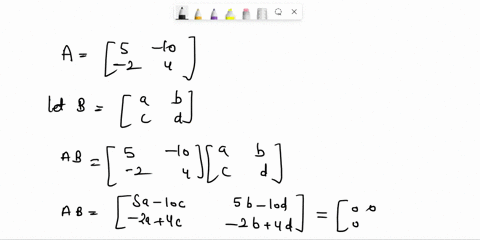 A = [5 -10
-2 4]
let B = [a b
c d]
AB = [5 -10
-2 4] [a b
c d]
AB = [5a-10c 5b-10d
-2a+4c -2b+4d] = [0 0
0